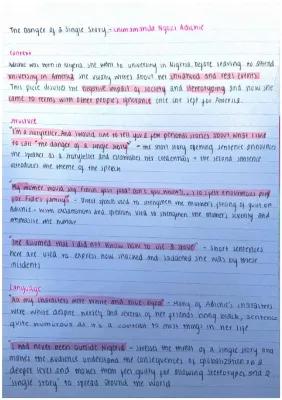 The Danger of a Single Story - Chimamanda Ngozi Adichie
Context
Adichie was born in Nigeria. She went to university in Nigeria, before leaving to attend
university in America. She usually writes about her childhood and real events.
This piece discusses the negative impact of society and stereotyping and how she
came to terms with other people's ignorance once she left for America.
Structure
"I'm a storyteller. And I would like to tell you a few personal stories about what I like
to call "the danger of a single story" - the short story opening sentence announces
the speaker as a storyteller and establishes her credentials - the second sentence
introduces the theme of the speech
"My mother would say, Finish your food! Don't you know?... to feel enormous pity
for Fide's family" - Direct speech used to strengthen the mother's feeling of guilt on
Adichie - with exclamation and question used to strengthen the mother's severity and
emphasise the
"She assumed that I did not know how to use a stove" - Short sentences
here are used to express how shocked and saddened she was by these
incidents
Language
"All my characters were white and blue-eyed" - Many of Adichie's characters
were white despite herself and several of her friends being black, sentence
quite humorous as it's a contrast to most things in her life
"I had never been outside Nigeria" - stresses the threat of a single story and
makes the audience understand the consequences of globalisation on a
deeper level and makes them feel guilty for allowing stereotypes and a
"single story" to spread around the world